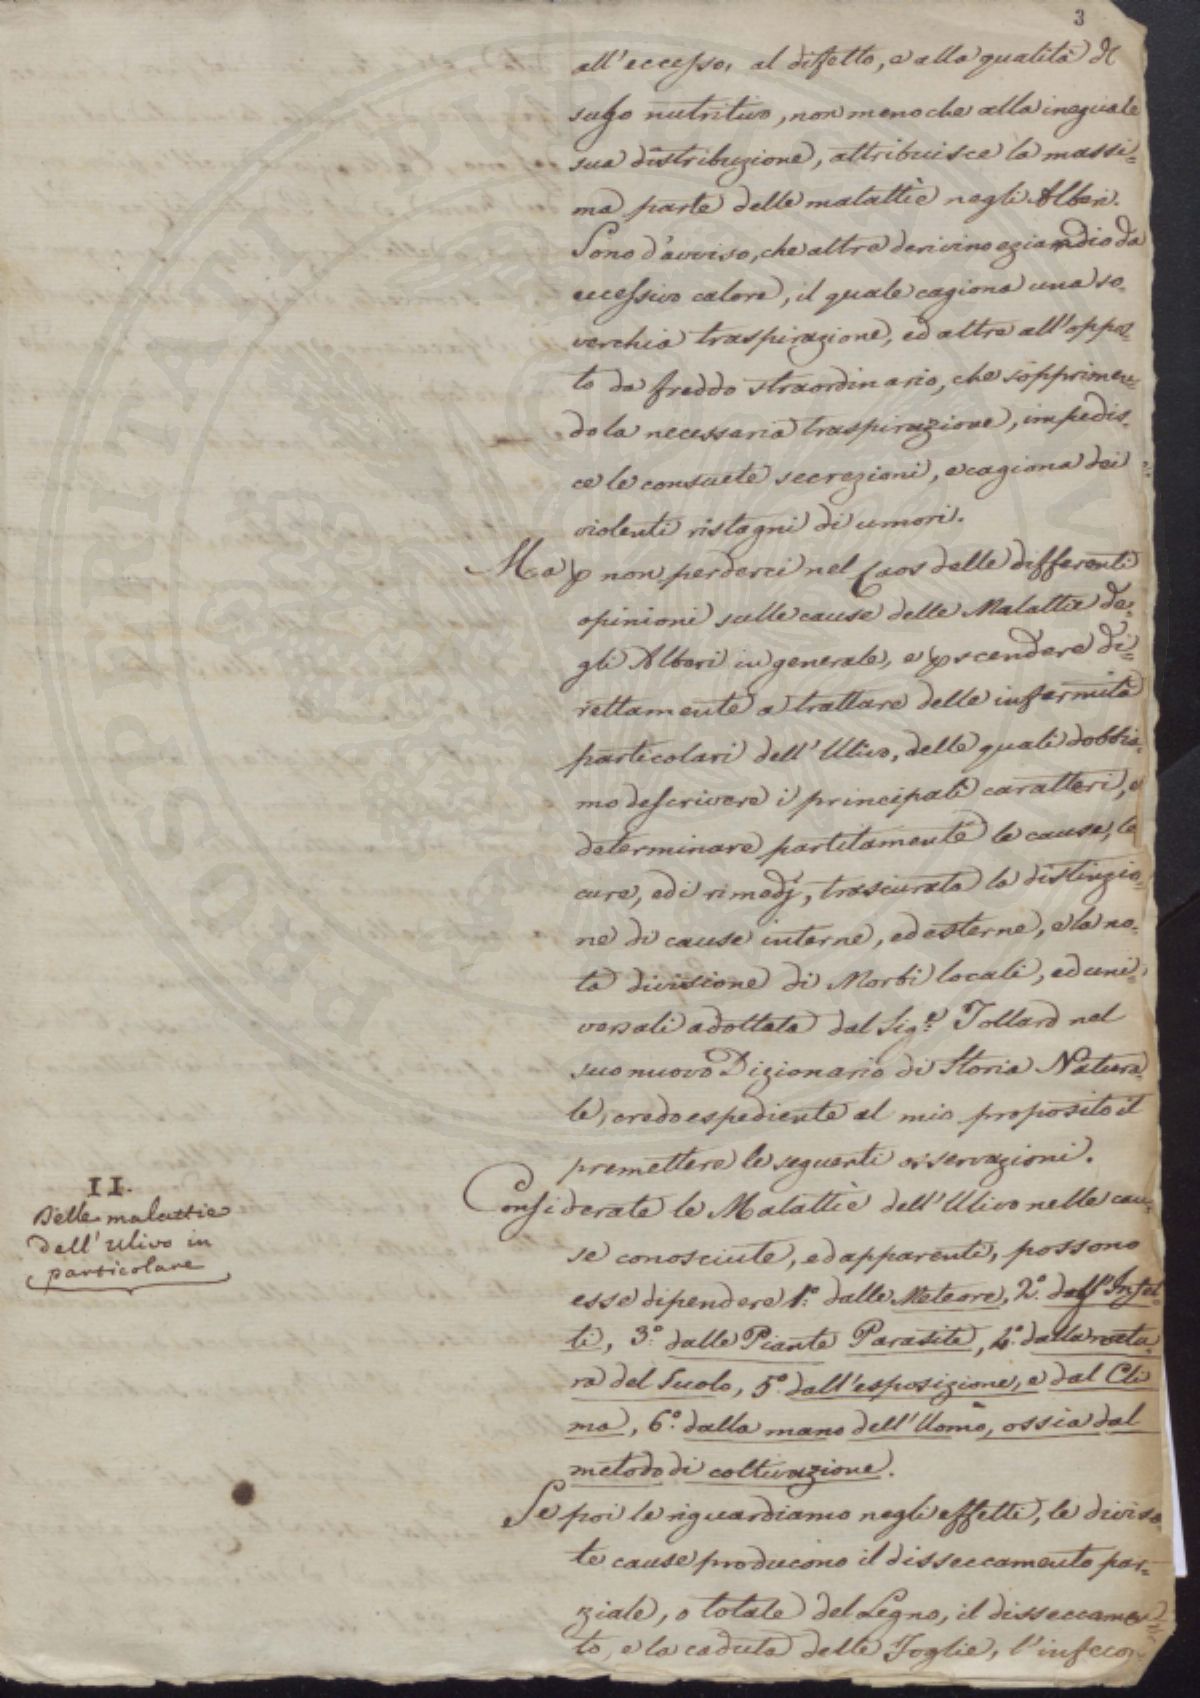 3
all'eccesso, al difetto, e alla qualità del
sugo nutritivo, non meno che alla ineguale
sua distribuzione, attribuisce la massi=
ma parte delle malattìe negli Alberi.
Sono d'avviso, che altre derivino eziandio da
eccessivo calore, il quale cagiona una so=
verchia traspirazione, ed altre all'oppos=
to da freddo straordinario, che sopprimen=
do la necessaria traspirazione, impedis=
ce le consuete secrezioni, e cagiona dei
violenti ristagni di umori.
Ma p non perderci nel Caos delle differenti
opinioni sulle cause delle Malattie de=
gli Alberi in generale, e p scendere di=
rettamente a trattare delle infermità
particolari dell'Ulivo, delle quali dobbia=
mo descrivere i principali caratteri, e
determinare partitamente le cause, le
cure, ed i rimedj, trascurata la distinzio=
ne di cause interne, ed esterne, e la no=
ta divisione di Morbi locali, ed uni=
versali adottata dal Sig.r Tollard nel
suo nuovo Dizionario di Storia Natura=
le, credo espediente al mio proposito il
premettere le seguenti osservazioni.
II.
Delle malattie
dell'Ulivo in
particolare
Considerate le Malattìe dell'Ulivo nelle cau=
se conosciute, ed apparenti, possono
esse dipendere 1.º dalle Meteore, 2.º dagl'Inset=
ti, 3.º dalle Piante Parasite, 4.º dalla natu=
ra del Suolo, 5.º dall'esposizione, e dal Cli
ma, 6.º dalla mano dell'Uomo, ossia dal
metodo di coltivazione.
Se poi le riguardiamo negli effetti, le divisa
te cause producono il disseccamento par=
ziale, o totale del Legno, il disseccamen=
to, e la caduta delle Foglie, l'infecon